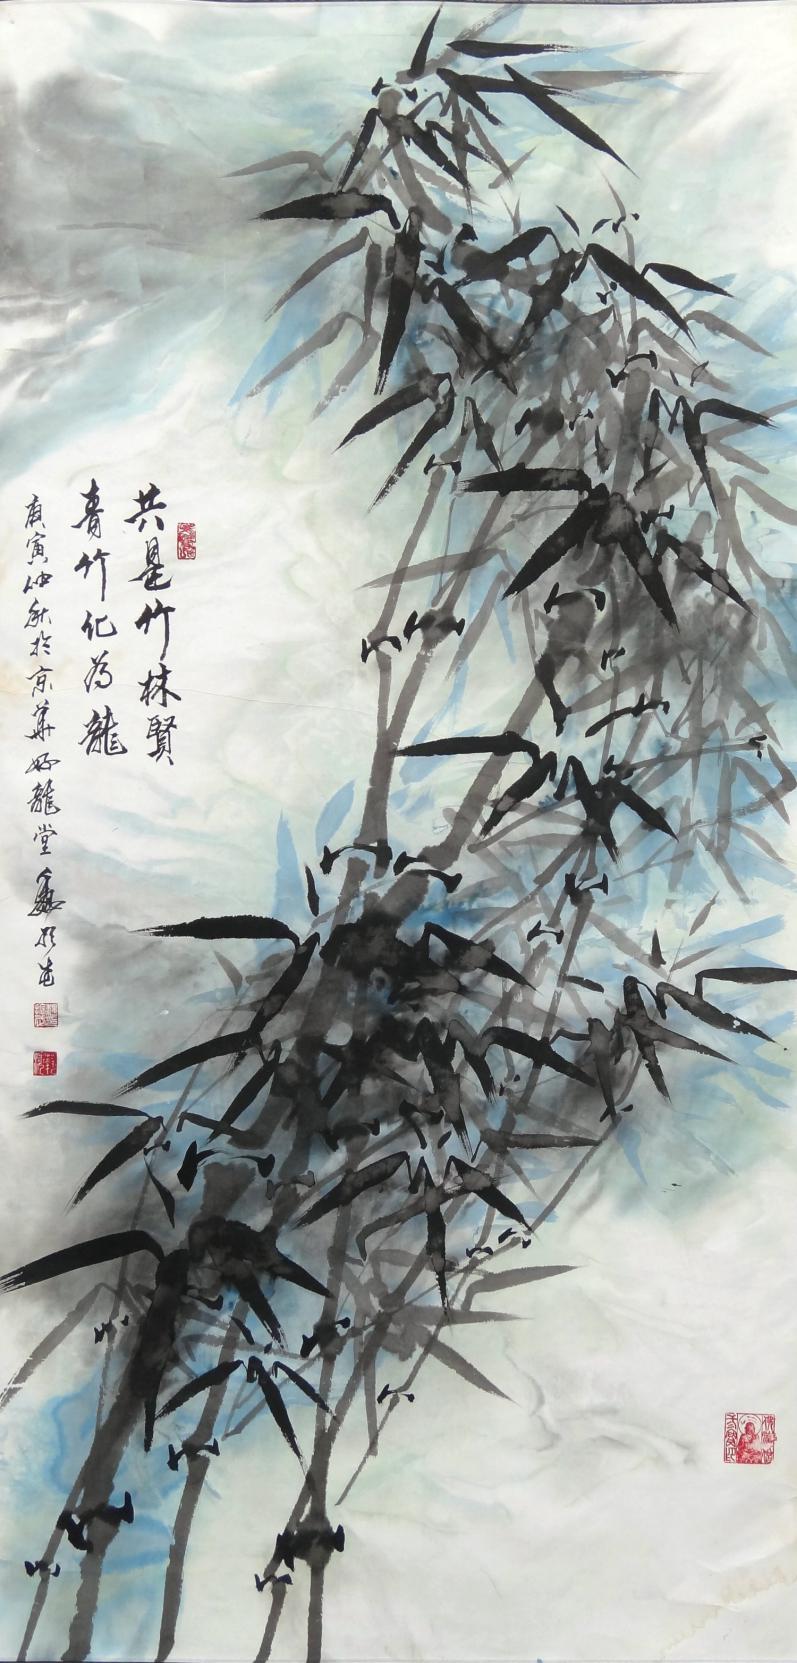 共是竹林賢
青竹化為龍
庚寅仲秋於京華好龍堂